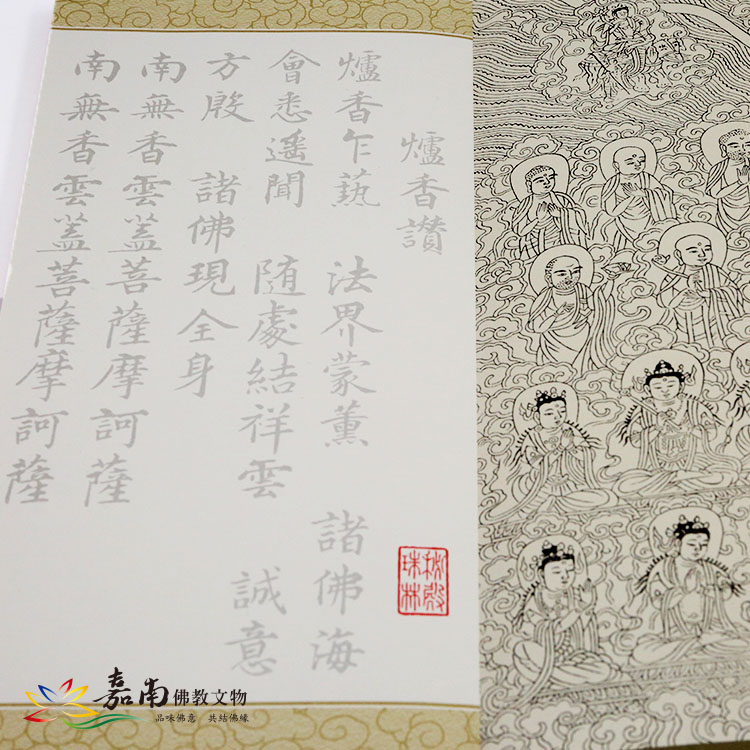 爐香讚
爐香乍爇 法界蒙薰 諸佛海
會悉遙聞 随處結祥雲 誠意
方殷 諸佛現全身
南無香雲蓋菩薩摩訶薩
南無香雲蓋菩薩摩訶薩
秘殿珠林
嘉南佛教文物
品味佛意 共結佛緣